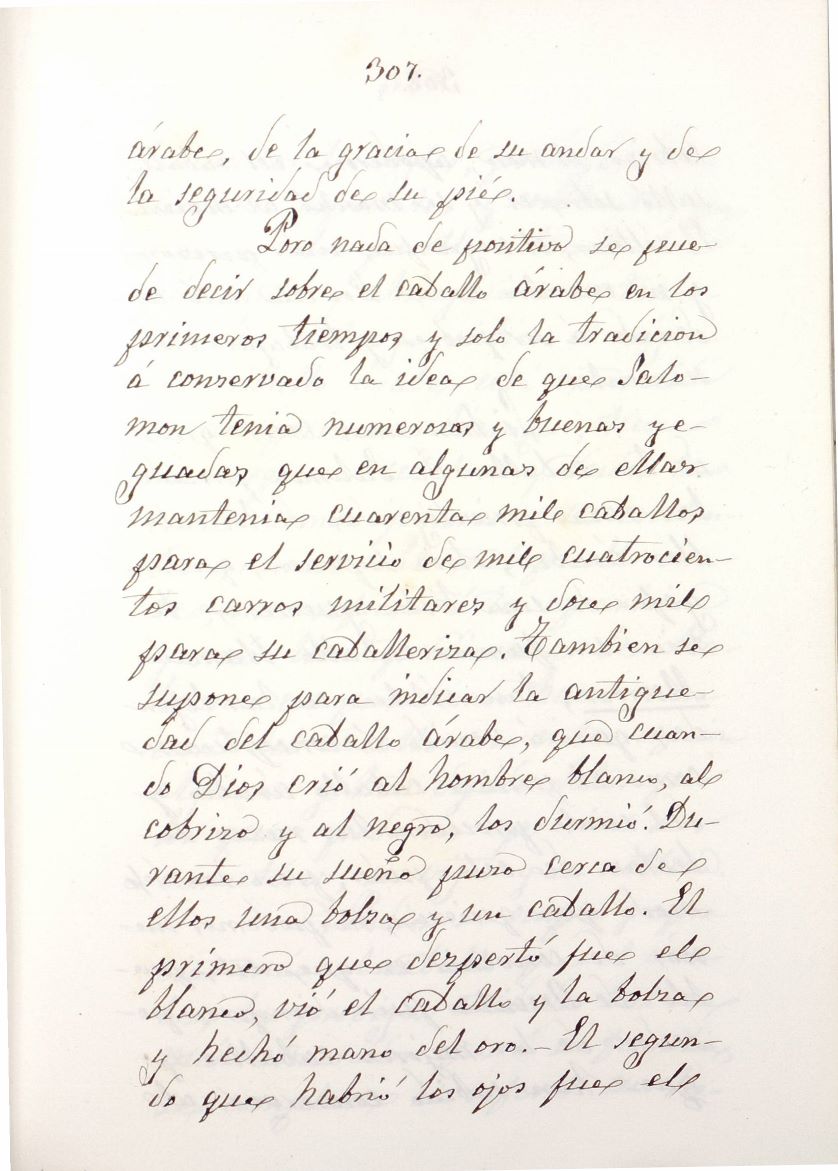 307.
árabe, de la gracia de su andar y de
la seguridad de su pié.
Pero nada de positivo se pue-
de decir sobre el caballo árabe en los
primeros tiempos y solo la tradicion
á conservado la idea de que Salo-
mon tenia numerosas y buenas ye-
guadas que en algunas de ellas
mantenia cuarenta mil caballos
para el servicio de mil cuatrocien-
tos carros militares y doce mil
para su caballeriza. Tambien se
supone para indicar la antigue-
dad del caballo árabe, que cuan-
do Dios crió al hombre blanco, al
cobrizo y al negro, los durmió. Du-
rante su sueño puzo cerca de
ellos una bolza y un caballo. El
primero que dezpertó fue el
blanco, vió el caballo y la bolza
y hechó mano del oro.- El segun-
do que habrió los ojos fue el